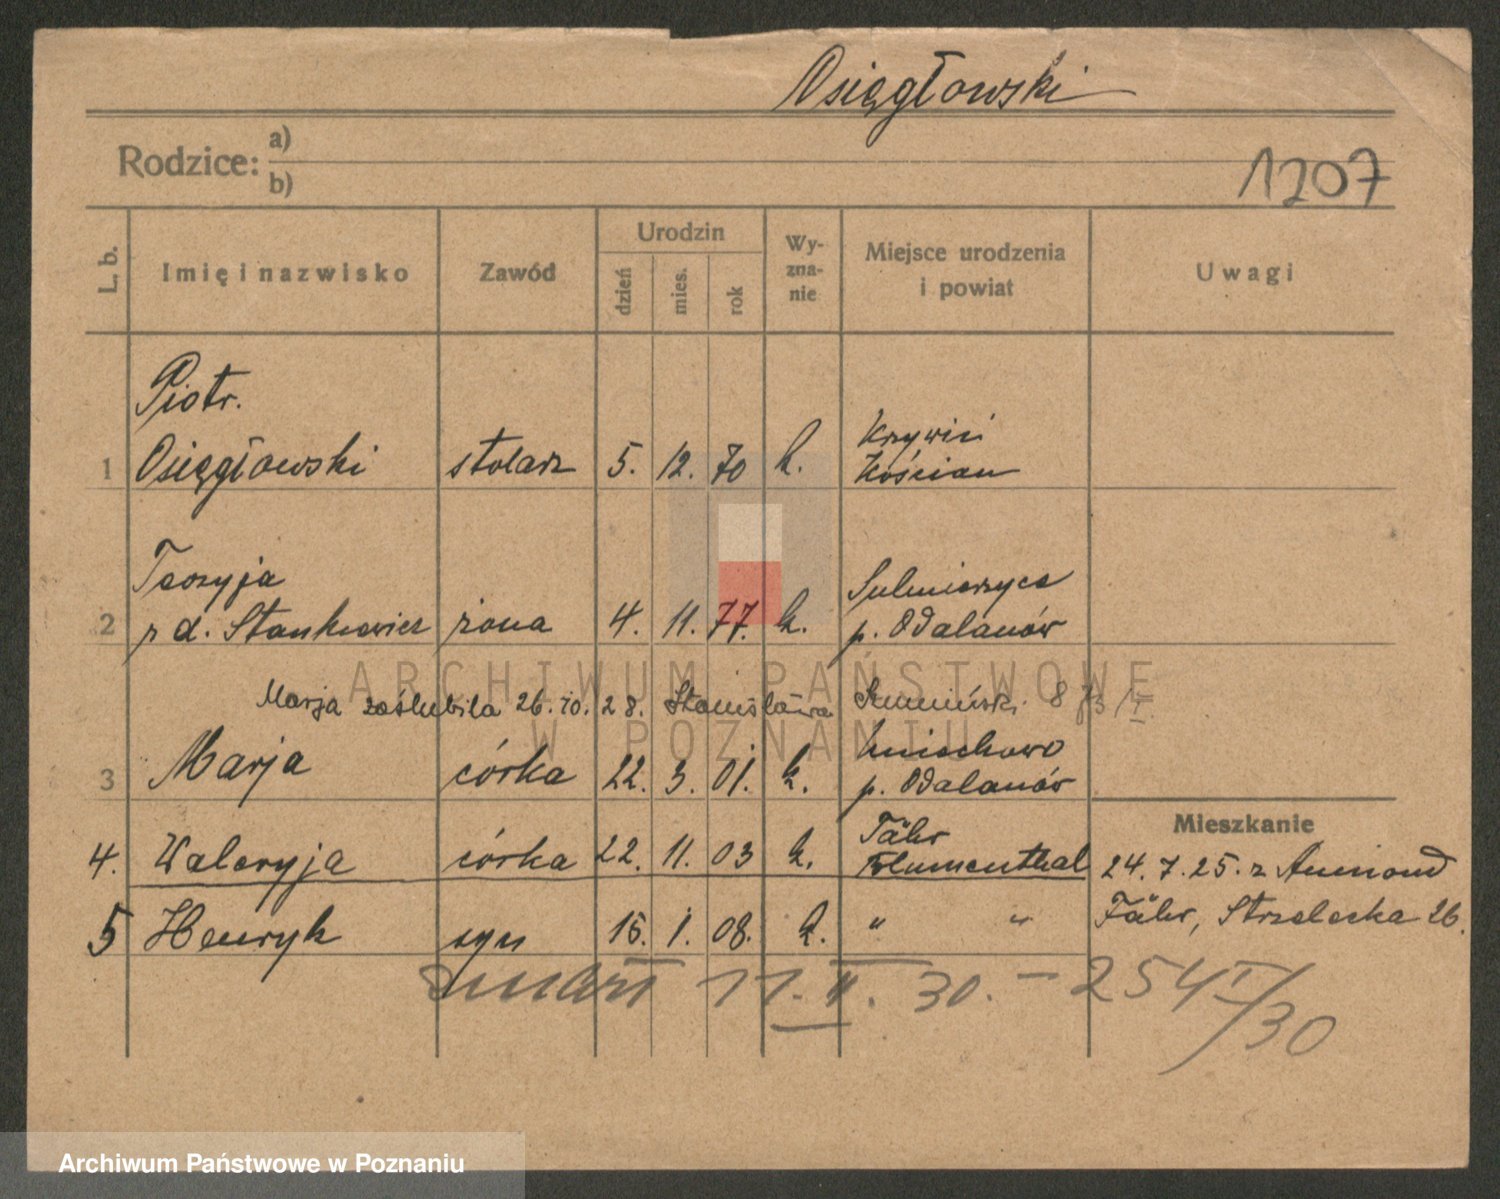 Osięgłowski
Rodzice: a)
b)
1207
L. b.
Imię i nazwisko
Zawód
Urodzin
dzień
mies.
rok
Wy-
zna-
nie
Miejsce urodzenia
i powiat
Uwagi
Piotr.
1 Osięgłowski stolarz 5. 12. 70 k. Krzywiń
Kościan
Teozyja
2 z d. Stankiewicz żona 4. 11. 77. k. Sulmierzyce
p. Odalanów
ARCHIWUM PAŃSTWOWE
W POZNANIU
Marja zaślubiła 26. 10. 28. Stanisława
3 Marja córka 22. 3. 01. k.
p. Odalanów
Mieszkanie
4. Waleryja córka 22. 11. 03 k. Fähr
Blumenthal
24. 7. 25. z
Fähr, Strzelecka 26.
5 Henryk syn 15. 1. 08. k. " "
zmarł 11. II. 30. – 254 I/30
Archiwum Państwowe w Poznaniu